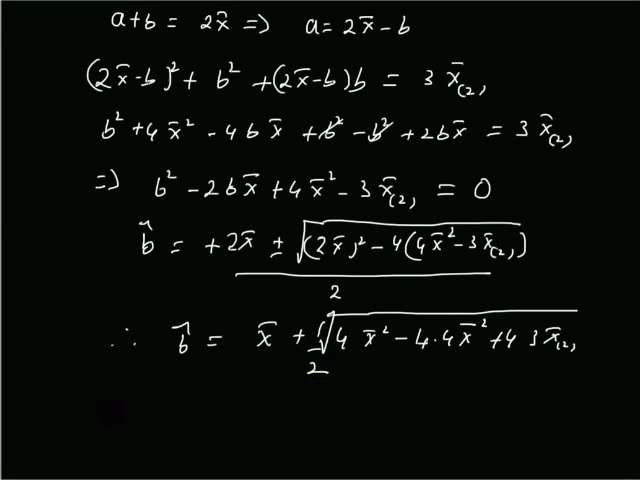 a+b = 2x̄ => a = 2x̄-b
(2x̄-b)² + b² +(2x̄-b)b = 3 x̄₍₂₎
b²+4x̄² - 4bx̄ +b² -b² +2bx̄ = 3 x̄₍₂₎
=) b² -2bx̄ +4x̄² -3x̄₍₂₎ = 0
b̂ = +2x̄ ± √((2x̄)² -4(4x̄²-3x̄₍₂₎)) / 2
∴ b̂ = x̄ + 1/2 √(4 x̄² -4.4x̄² +4 3x̄₍₂₎)